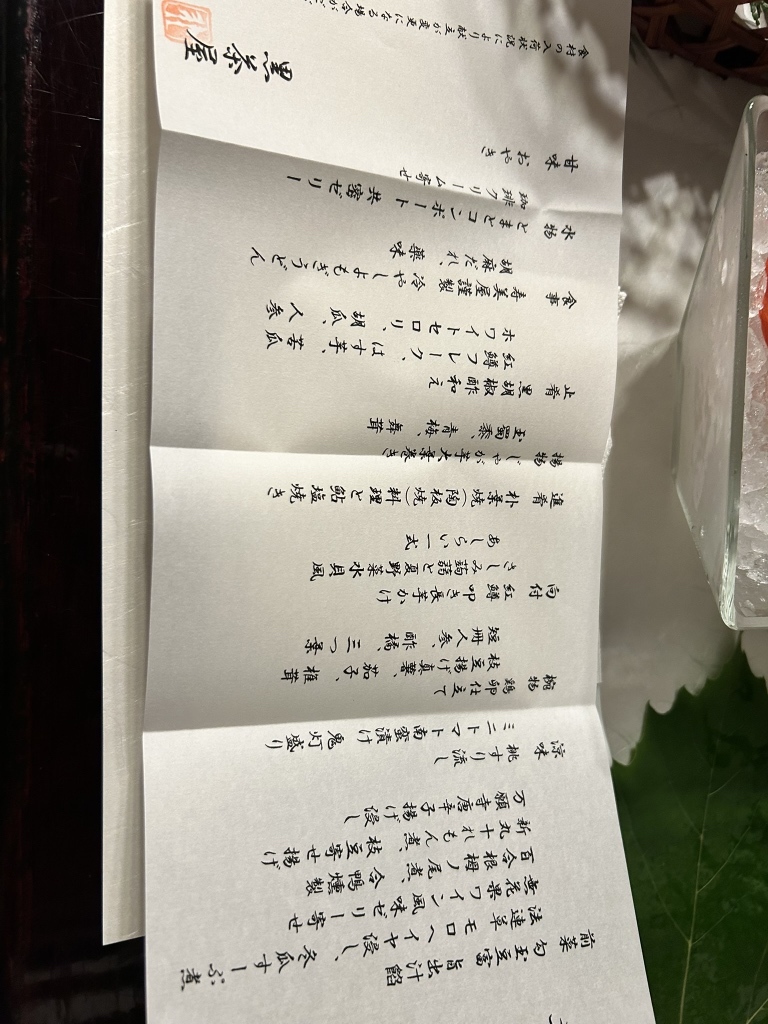 前菜 勾玉豆富 旨出汁餡
法連草モロヘイヤ浸し、冬瓜すーぷ煮
無花果ワイン風味ゼリー寄せ
百合根栂ノ尾煮、合鴨燻製
新丸十れもん煮、枝豆寄せ揚げ
万願寺唐辛子揚げ浸し
涼味 桃すり流し
ミニトマト南蛮漬け 鬼灯盛り
椀物 鶏卵仕立て
枝豆揚げ真薯、茄子、椎茸
短冊人参、酢橘、三つ葉
向付 紅鱒叩き長芋かけ
さしみ蒟蒻と夏野菜水貝風
あしらい一式
進肴 朴葉焼(陶板焼)料理と鮎塩焼き
揚物 じゃが芋大葉巻き
玉蜀黍、青梅、舞茸
止肴 黒胡椒酢和え
紅鱒フレーク、はす芋、苦瓜
ホワイトセロリ、胡瓜、人参
食事 寿美屋謹製 冷やしよもぎうどん
胡麻だれ、薬味
水物 とまとコンポート 共蜜ゼリー
珈琲クリーム寄せ
甘味 おやき
黒茶屋
食材の入荷状況により献立が変更になる場合が